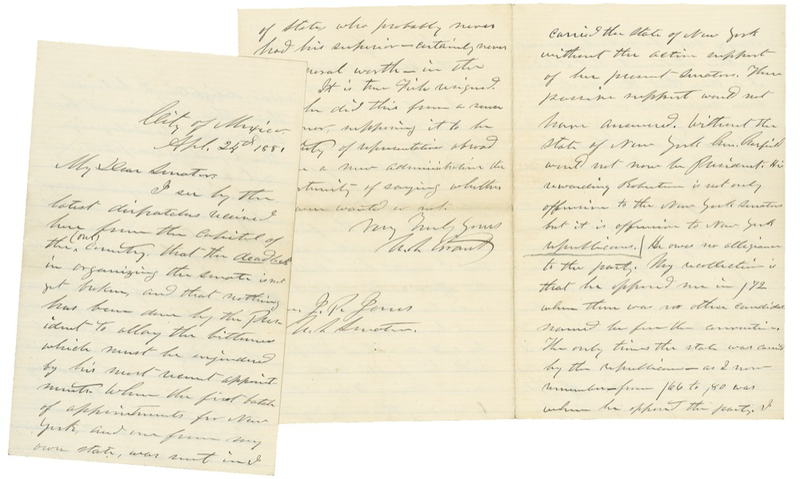 City of Mexico
Apl. 24th 1881
My Dear Senator
I see by the
latest dispatches received
here from the Capitol of
the (our) country, that the deadlock
in organizing the Senate is not
yet broken, and that nothing
has been done by the Pres-
ident to allay the bitterness
which must be engendered
by his most recent appoint
ments. When the first batch
of appointments for New
York, and one from my
own state, was sent in I
of state who probably never
had his superior—certainly never
moral worth—in the
It is true Fish resigned.
he did this from a sense
supposing it to be
duty of representatives abroad
a new administration the
opportunity of saying whether
were wanted or not.
Very Truly Yours
U. S. Grant
J. P. Jones
U. S. Senator.
carried the state of New York
without the active support
of her present Senators. Their
passive support would not
have answered. Without the
state of New York Gen. Garfield
would not now be President. His
rewarding Robertson is not only
offensive to the New York Senators
but it is offensive to New York
republicans. He owes no allegiance
to the party. My recollection is
that he opposed me in /72
when there was no other candidate
named before the convention.
The only times the state was carried
by the republicans—as I now
remember—from /66 to /80 was
when he opposed the party. I